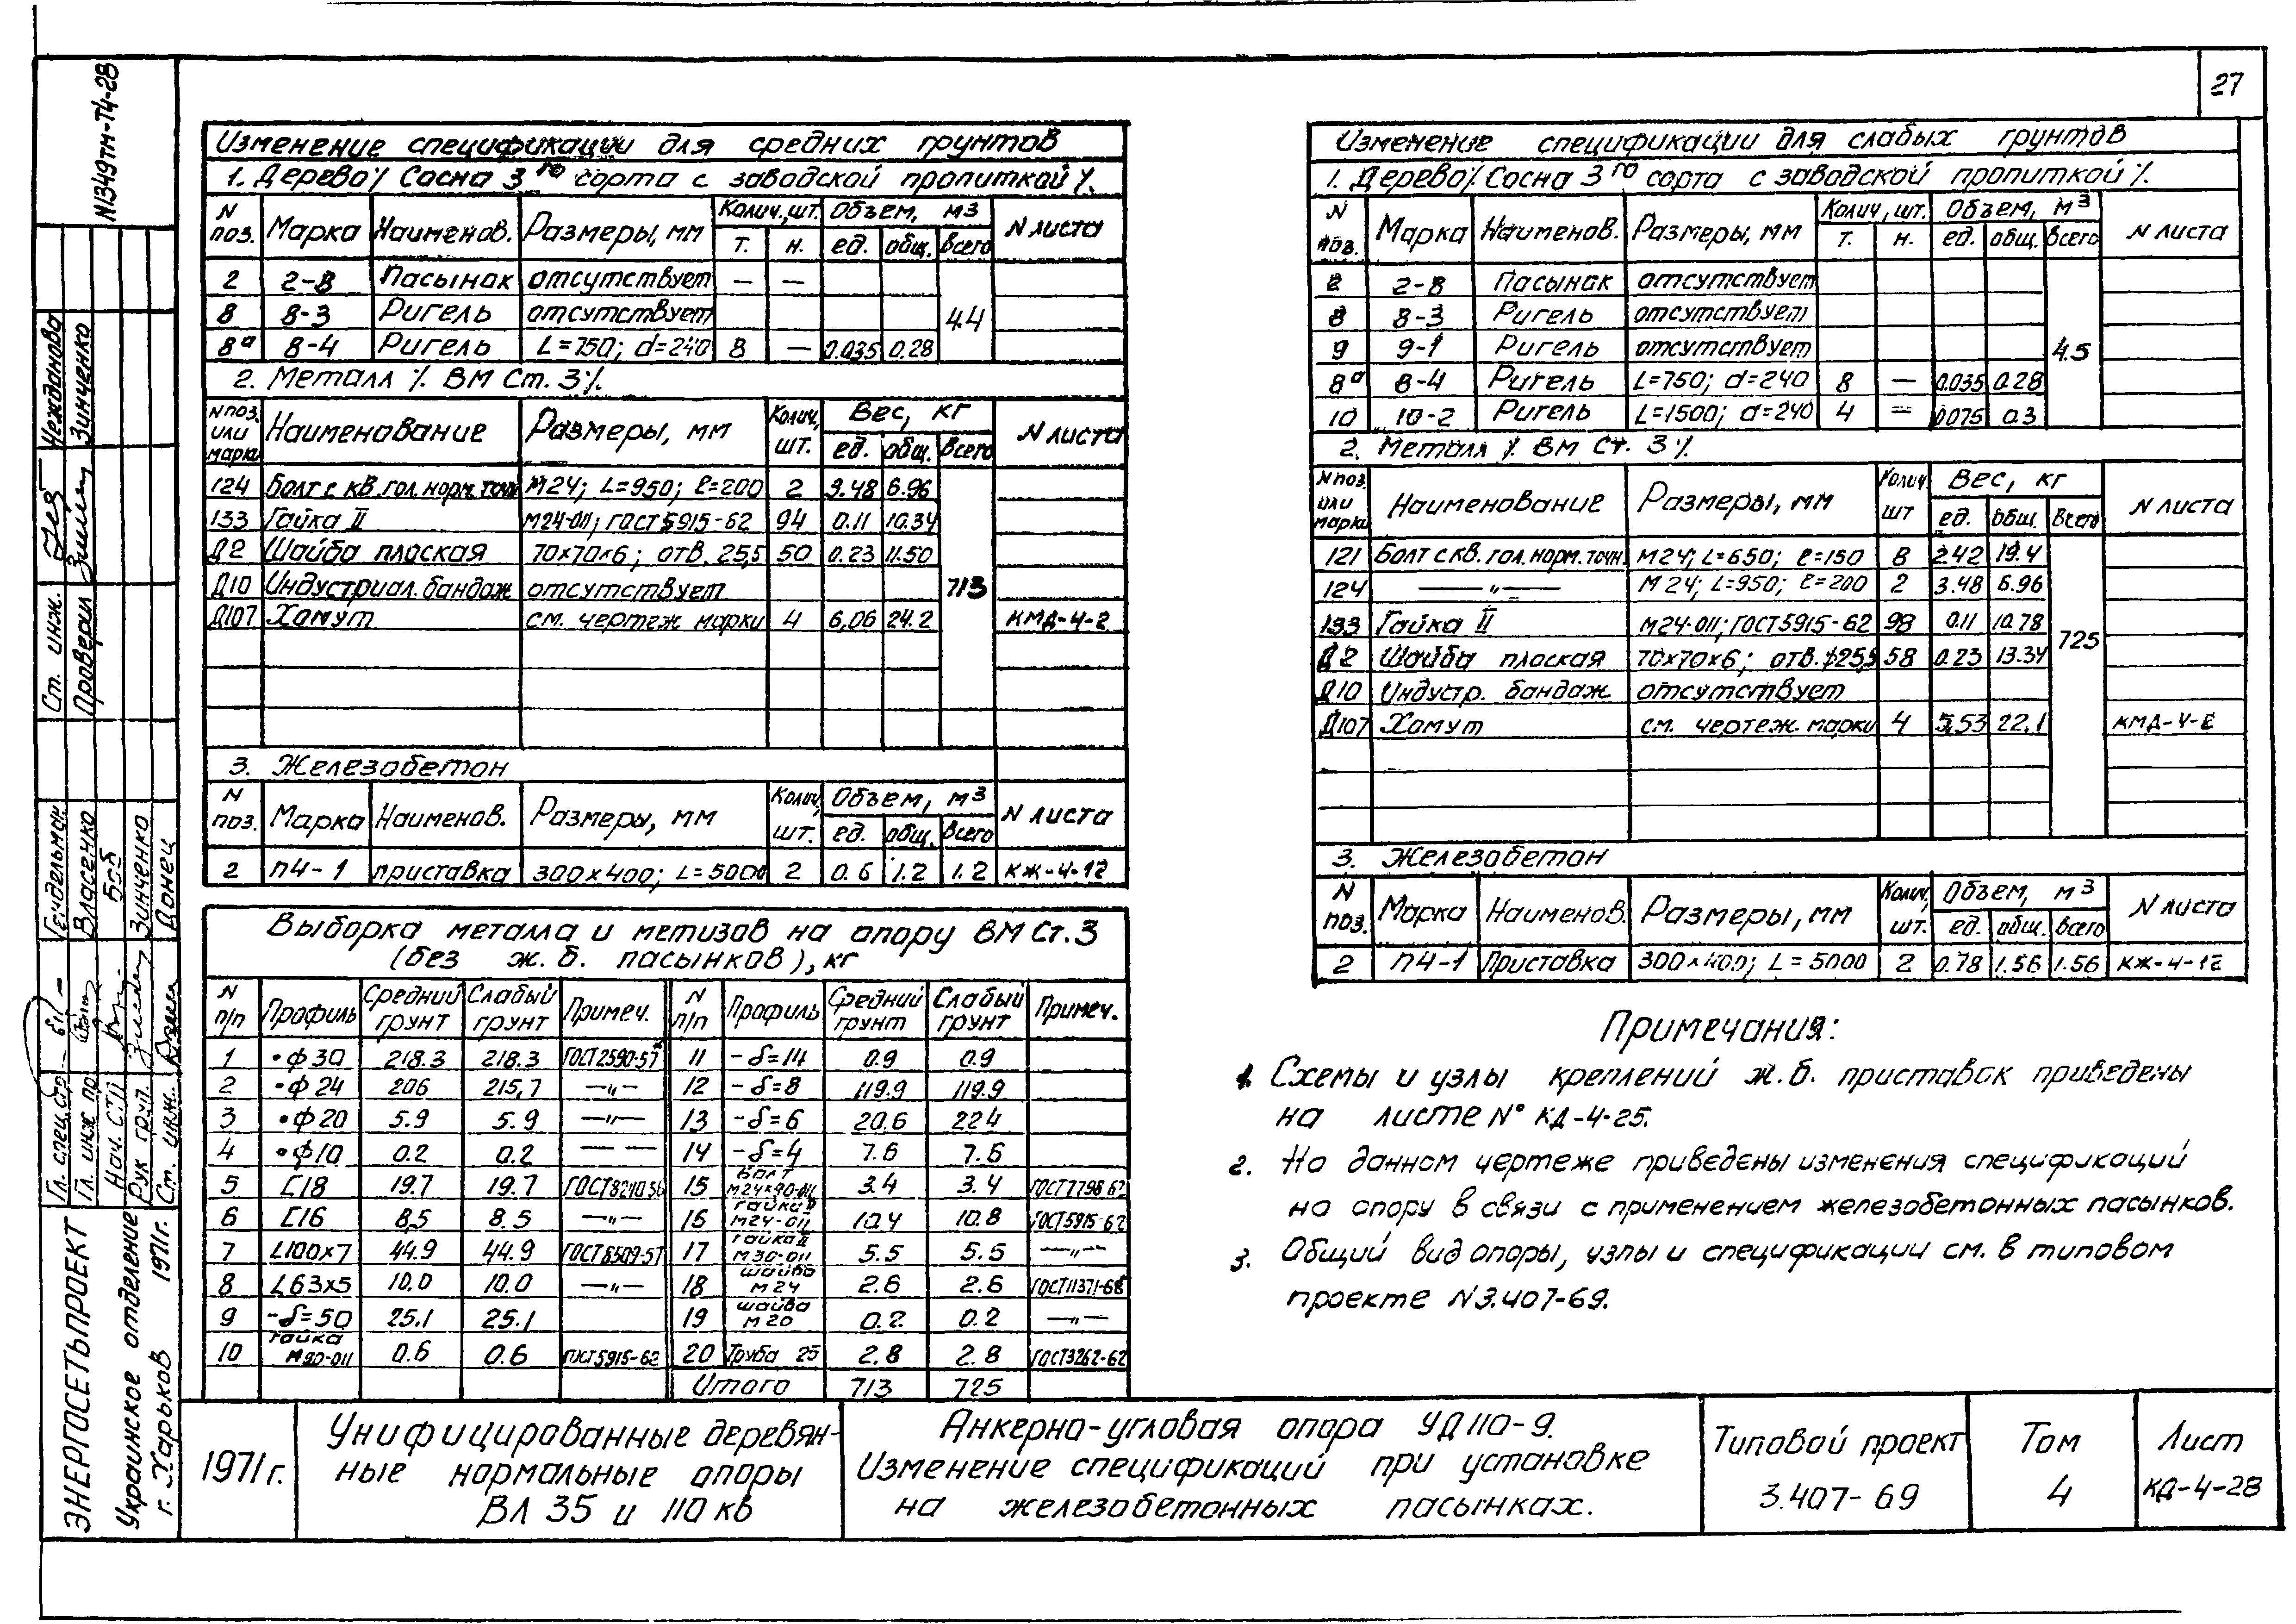 27
N1349тм-Т4-28
Изменение спецификации для средних грунтов
1. Дерево % Сосна 3го сорта с заводской пропиткой %.
N поз. Марка Наименов. Размеры, мм Колич, шт. Объем, м3 N листа
т. н. ед. общ. всего
2 2-8 Пасынок отсутствует — —
8 8-3 Ригель отсутствует 4.4
8а 8-4 Ригель L=750; d=240 8 — 0.035 0.28
2. Металл % ВМ Ст. 3%.
N поз. или марка Наименование Размеры, мм Колич, шт. Вес, кг N листа
ед. общ. всего
124 Болт с кв. гол. норм. точн М24; L=950; ℓ=200 2 3.48 6.96
133 Гайка II М24-011; ГОСТ 5915-62 94 0.11 10.34
Д2 Шайба плоская 70×70×6; отв. 25,5 50 0.23 11.50
Д10 Индустриал. бандаж отсутствует 713
Д107 Хомут см. чертеж марки 4 6,06 24.2 КМД-4-2
3. Железобетон
N поз. Марка Наименов. Размеры, мм Колич, шт. Объем, м3 N листа
ед. общ. всего
2 п4-1 приставка 300×400; L=5000 2 0.6 1.2 1.2 КЖ-4-12
Выборка металла и метизов на опору ВМ Ст. 3
(без ж. б. пасынков), кг
N п/п Профиль Средний грунт Слабый грунт Примеч. N п/п Профиль Средний грунт Слабый грунт Примеч.
1 •ф30 218.3 218.3 ГОСТ 2590-57* 11 -δ=14 0.9 0.9
2 •ф24 206 215,7 —"— 12 -δ=8 119.9 119.9
3 •ф20 5.9 5.9 —"— 13 -δ=6 20.6 22.4
4 •ф10 0.2 0.2 — — 14 -δ=4 7.6 7.6
5 С18 19.7 19.7 ГОСТ 8240-56 15 Болт М24×90-011 3.4 3.4 ГОСТ 7798-62
6 С16 8,5 8.5 —"— 16 гайка II М24-011 10.4 10.8 ГОСТ 5915-62
7 L100×7 44.9 44.9 ГОСТ 8509-57 17 гайка II М30-011 5.5 5.5 —"—
8 L63×5 10.0 10.0 —"— 18 шайба М24 2.6 2.6 ГОСТ 11371-68
9 -δ=50 25.1 25.1 19 шайба М20 0.2 0.2 —"—
10 гайка М20-011 0.6 0.6 ГОСТ 5915-62 20 Труба 25 2.8 2.8 ГОСТ 3262-62
Итого 713 725
Изменение спецификации для слабых грунтов
1. Дерево % Сосна 3го сорта с заводской пропиткой %.
N поз. Марка Наименов. Размеры, мм Колич, шт. Объем, м3 N листа
т. н. ед. общ. всего
2 2-8 Пасынок отсутствует
8 8-3 Ригель отсутствует
9 9-1 Ригель отсутствует 4.5
8а 8-4 Ригель L=750; d=240 8 — 0.035 0.28
10 10-2 Ригель L=1500; d=240 4 — 0.075 0.3
2. Металл % ВМ Ст. 3%.
N поз. или марки Наименование Размеры, мм Колич шт Вес, кг N листа
ед. общ. всего
121 Болт с кв. гол. норм. точн. М24; L=650; ℓ=150 8 2.42 19.4
124 —"— М24; L=950; ℓ=200 2 3.48 6.96
133 Гайка II М24-011; ГОСТ 5915-62 98 0.11 10.78
Д2 Шайба плоская 70×70×6; отв. ф25,5 58 0.23 13.34 725
Д10 Индустр. бандаж отсутствует
Д107 Хомут см. чертеж. марки 4 5,53 22,1 КМД-4-2
3. Железобетон
N поз. Марка Наименов. Размеры, мм Колич, шт. Объем, м3 N листа
ед. общ. всего
2 п4-1 Приставка 300×400; L=5000 2 0.78 1.56 1.56 КЖ-4-12
Примечания:
1. Схемы и узлы креплений ж. б. приставок приведены
на листе N° КД-4-25.
2. На данном чертеже приведены изменения спецификаций
на опору в связи с применением железобетонных пасынков.
3. Общий вид опоры, узлы и спецификации см. в типовом
проекте N3.407-69.
Ст. инж. Нежданова
Проверил Зинченко
Гл. спец. стр. Гендельман
Гл. инж. пр. Власенко
Нач. СТП Боб
Рук. груп. Зинченко
Ст. инж. Донец
ЭНЕРГОСЕТЬПРОЕКТ
Украинское отделение
г. Харьков 1971г.
1971г.
Унифицированные деревян-
ные нормальные опоры
ВЛ 35 и 110 кв
Анкерно-угловая опора УД110-9.
Изменение спецификаций при установке
на железобетонных пасынках.
Типовой проект
3.407-69
Том
4
Лист
КД-4-28